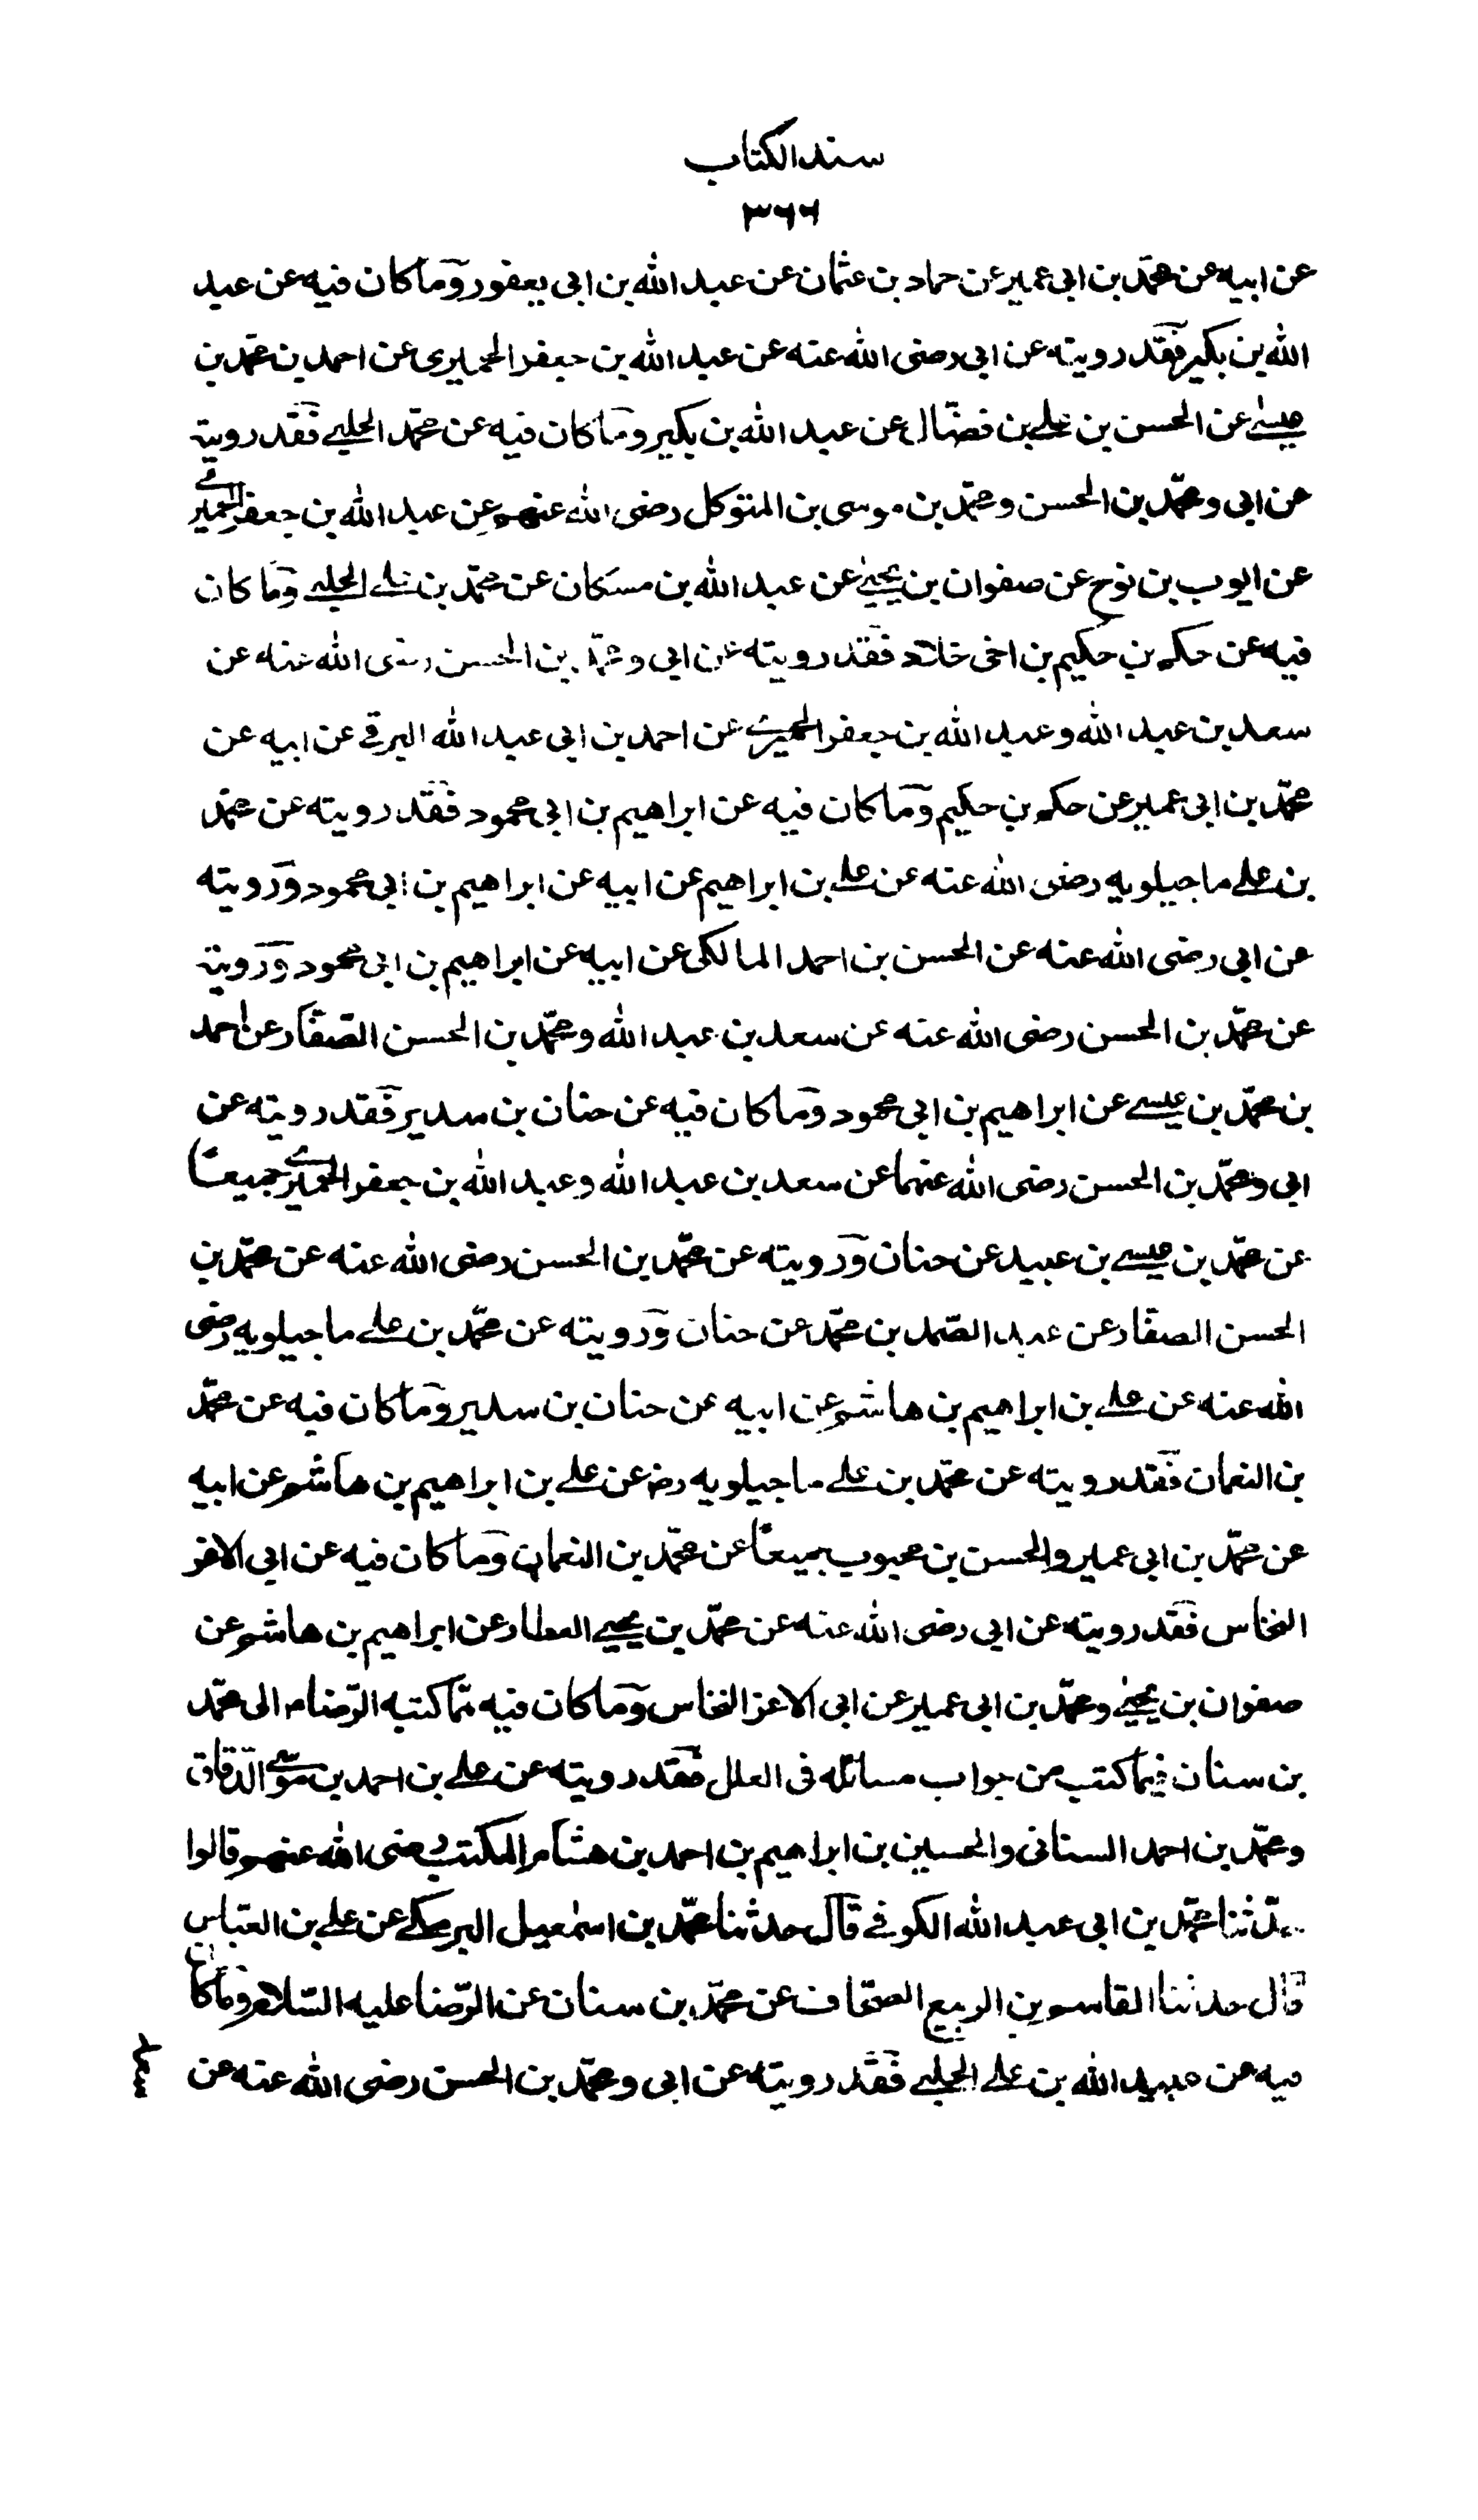 سند الكتاب
٣٦٦
عن ابيه عن محمّد بن ابى عمير عن حماد بن عثمان عن عبد الله بن ابى يعفور وما كان فيه عن عبد
الله بن بكير فقد رويته عن ابى رضى الله عنه عن عبد الله بن جعفر الحميرى عن احمد بن محمّد بن
عيسى عن الحسن بن على بن فضّال عن عبد الله بن بكير وما كان فيه عن محمّد الحلبى فقد رويته
عن ابى ومحمّد بن الحسن ومحمّد بن موسى بن المتوكل رضى الله عنهم عن عبد الله بن جعفر الحميرى
عن ايوب بن نوح عن صفوان بن يحيى عن عبد الله بن مسكان عن محمّد بن على الحلبى وما كان
فيه عن حكم بن حكيم بن اخى خلاد فقد رويته عن ابى ومحمّد بن الحسن رضى الله عنه عن
سعد بن عبد الله وعبد الله بن جعفر الحميرى عن احمد بن ابى عبد الله البرقى عن ابيه عن
محمّد بن ابى عمير عن حكم بن حكيم وما كان فيه عن ابراهيم بن ابى محمود فقد رويته عن محمّد
بن على ماجيلويه رضى الله عنه عن على بن ابراهيم عن ابيه عن ابراهيم بن ابى محمود ورويته
عن ابى رضى الله عنه عن الحسن بن احمد المالكى عن ابيه عن ابراهيم بن ابى محمود ورويته
عن محمّد بن الحسن رضى الله عنه عن سعد بن عبد الله ومحمّد بن الحسن الصّفّار عن احمد
بن محمّد بن عيسى عن ابراهيم بن ابى محمود وما كان فيه عن حنان بن سدير فقد رويته عن
ابى ومحمّد بن الحسن رضى الله عنهما عن سعد بن عبد الله وعبد الله بن جعفر الحميرى جميعًا
عن محمّد بن عيسى بن عبيد عن حنان ورويته عن محمّد بن الحسن رضى الله عنه عن محمّد بن
الحسن الصفّار عن عبد الصّمد بن محمّد عن حنان ورويته عن محمّد بن على ماجيلويه رضى
الله عنه عن على بن ابراهيم بن هاشم عن ابيه عن حنان بن سدير وما كان فيه عن محمّد
بن النعمان فقد رويته عن محمّد بن على ماجيلويه رض عن على بن ابراهيم بن هاشم عن ابيه
عن محمّد بن ابى عمير والحسن بن محبوب جميعًا عن محمّد بن النعمان وما كان فيه عن ابى الاغر
النخاس فقد رويته عن ابى رضى الله عنه عن محمّد بن يحيى العطار عن ابراهيم بن هاشم عن
صفوان بن يحيى ومحمّد بن ابى عمير عن ابى الاعز النخاس وما كان فيه ممّا كتبه الرّضا م الى محمّد
بن سنان فيما كتب من جواب مسائله فى العلل فقد رويته عن على بن احمد بن موسى الدّقاق
ومحمّد بن احمد السنانى والحسين بن ابراهيم بن احمد بن هشام المكتب رضى الله عنهم قالوا
حدّثنا محمّد بن ابى عبد الله الكوفى قال حدثنا محمّد بن اسمعيل البرمكى عن على بن العبّاس
قال حدثنا القاسم بن الربيع الصحّاف عن محمّد بن سنان عن الرّضا عليه السّلام وما كان
فيه عن عبيد الله بن على الحلبى فقد رويته عن ابى ومحمّد بن الحسن رضى الله عنه عن